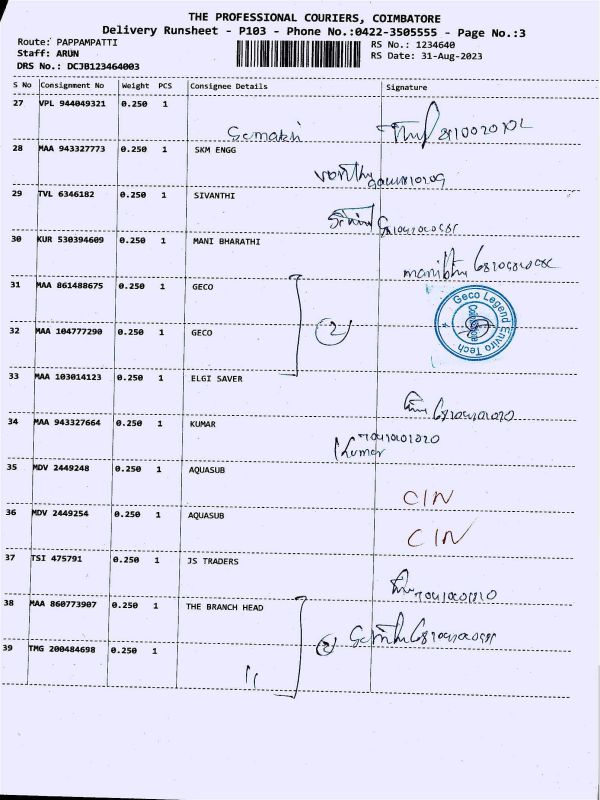 THE PROFESSIONAL COURIERS, COIMBATORE
Delivery Runsheet - P103 - Phone No.:0422-3505555 - Page No.:3
Route: PAPPAMPATTI
RS No.: 1234640
Staff: ARUN
RS Date: 31-Aug-2023
DRS No.: DCJB123464003
S No Consignment No Weight PCS Consignee Details Signature
27 VPL 944049321 0.250 1
28 MAA 943327773 0.250 1 SKM ENGG
29 TVL 6346182 0.250 1 SIVANTHI
30 KUR 530394609 0.250 1 MANI BHARATHI
31 MAA 861488675 0.250 1 GECO
Geco Legend Enviro Tech
32 MAA 104777290 0.250 1 GECO
2
33 MAA 103014123 0.250 1 ELGI SAVER
34 MAA 943327664 0.250 1 KUMAR
Kumar
35 MDV 2449248 0.250 1 AQUASUB
CIN
36 MDV 2449254 0.250 1 AQUASUB
CIN
37 TSI 475791 0.250 1 JS TRADERS
38 MAA 860773907 0.250 1 THE BRANCH HEAD
2
39 TMG 200484698 0.250 1